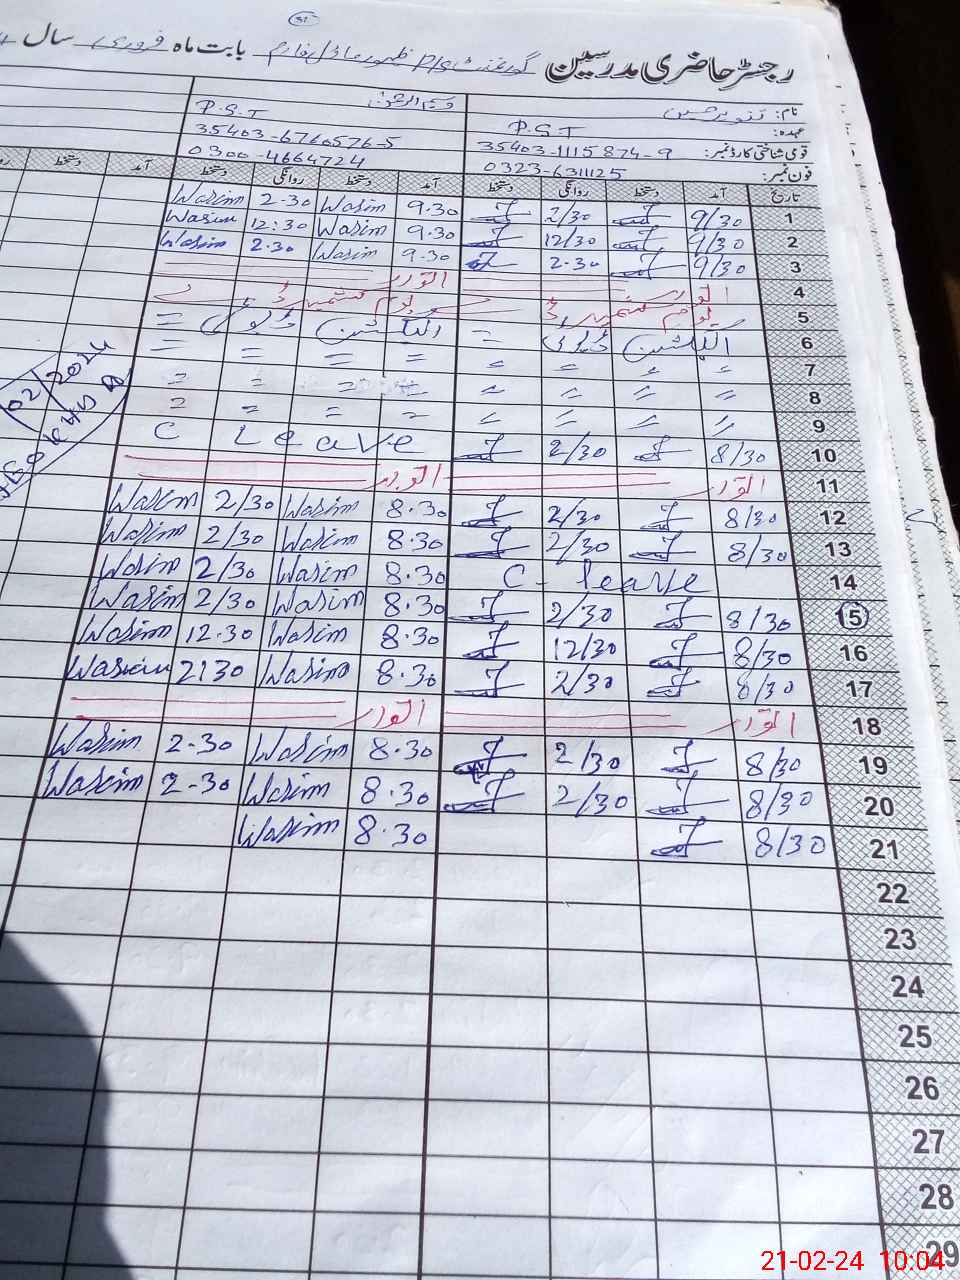 31
رجسٹر حاضری مدرسین گورنمنٹ P/S ظہور عادل فارم بابت ماہ فروری سال
نام: تنویر حسین وسیم الرحمن
عہدہ: P.S.T P.S.T
قومی شناختی کارڈ نمبر: 35403-1115874-9 35403-6766576-5
فون نمبر: 0323-6311125 0300-4664724
تاریخ آمد دستخط روانگی دستخط آمد دستخط روانگی دستخط آمد دستخط
1 9/30 2/30 9.30 Wasim 2.30 Wasim
2 9/30 12/30 9.30 Wasim 12:30 Wasim
3 9/30 2.30 9.30 Wasim 2.30 Wasim
4 اتوار اتوار
5 یوم کشمیر ڈے یوم کشمیر ڈے
6 الیکشن ڈیوٹی = الیکشن ڈیوٹی =
7 = = = = = = = =
8 = = = = = = =
9 = = = = = = = =
10 8/30 2/30 C Leave
11 اتوار اتوار
12 8/30 2/30 8.30 Wasim 2/30 Wasim
13 8/30 2/30 8.30 Wasim 2/30 Wasim
14 C - leave 8.30 Wasim 2/30 Wasim
15 8/30 2/30 8.30 Wasim 2/30 Wasim
16 8/30 12/30 8.30 Wasim 12.30 Wasim
17 8/30 2/30 8.30 Wasim 2130 Wasim
18 اتوار اتوار
19 8/30 2/30 8.30 Wasim 2.30 Wasim
20 8/30 2/30 8.30 Wasim 2.30 Wasim
21 8/30 8.30 Wasim
22
23
24
25
26
27
28
29
02/2024
21-02-24 10:04